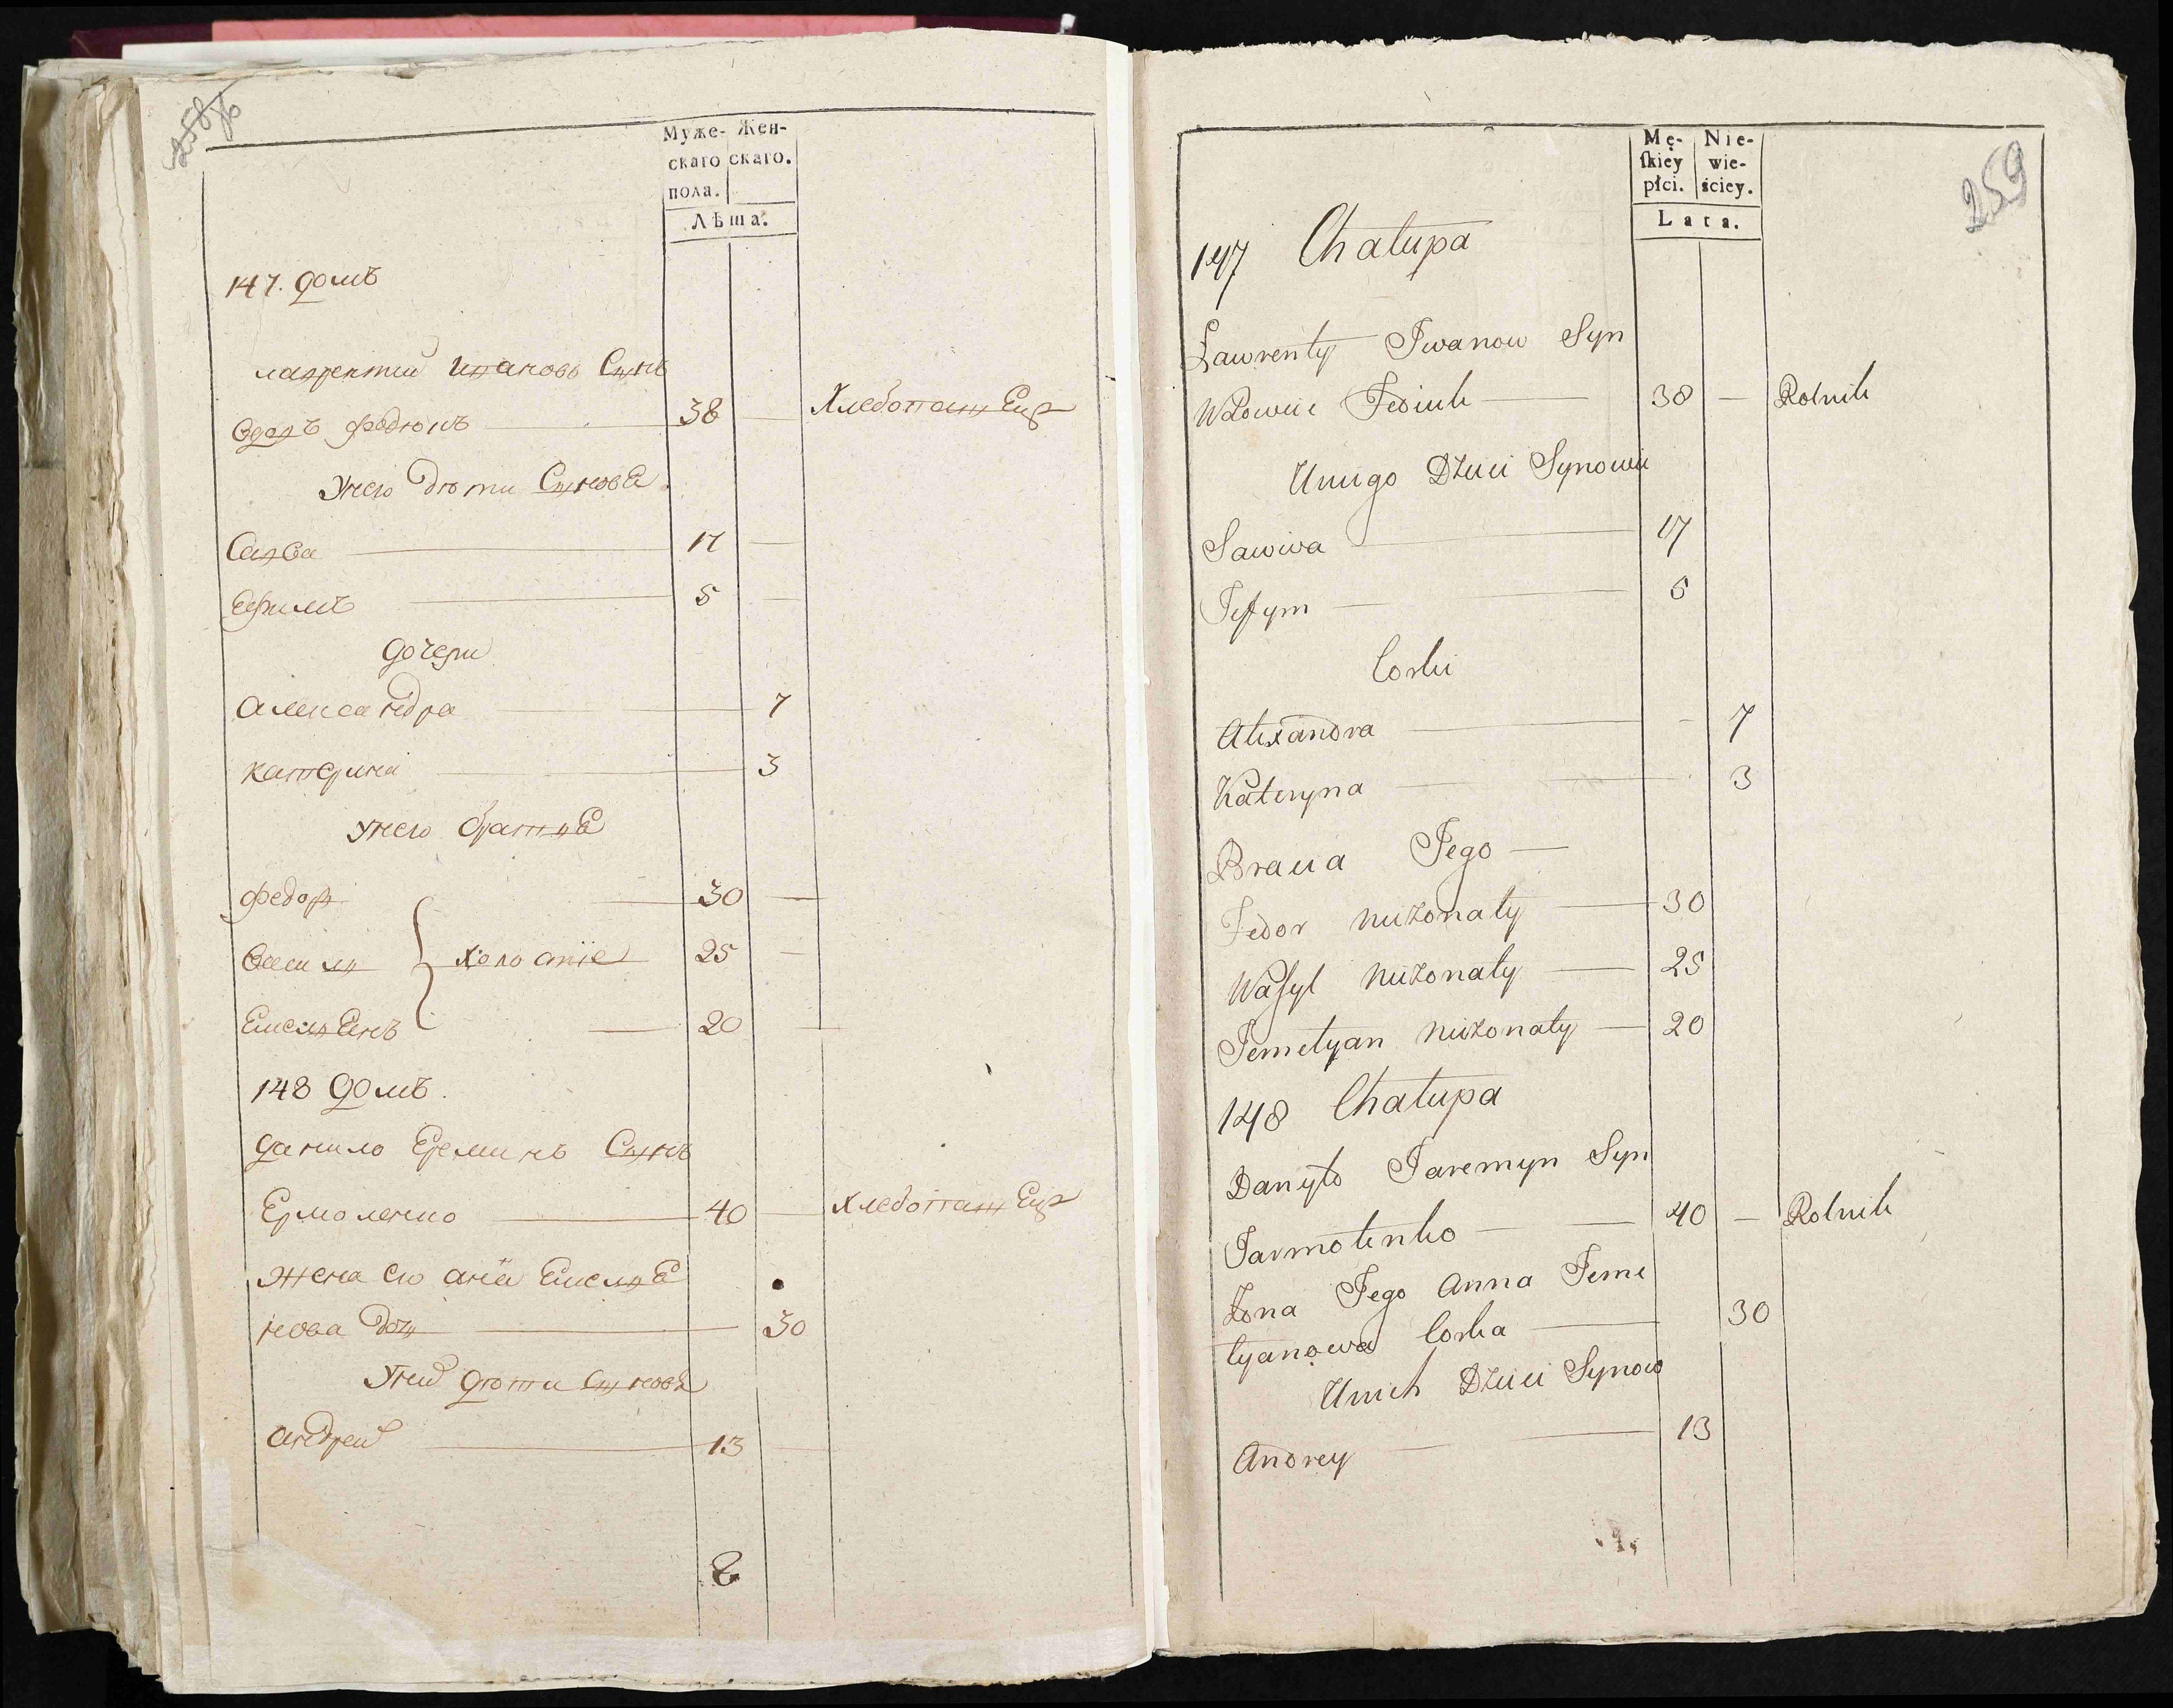 258 об
Муже- Жен-
скаго скаго.
пола.
Лѣта.
147. домъ
лаврентий Ивановъ Сынъ
вдовъ федюкъ 38 — Хлебопашецъ
Унего дѣти Сыновя
Савва 17 —
Ефимъ 5 —
дочери
александра 7
катерина 3
унего братья
федоръ 30 —
василь } холостіе 25 —
Емельянъ 20 —
148 домъ.
данило Ереминъ Сынъ
Ермоленко 40 — хлебопашецъ
жена его анна Емелья
нова дочь 30
Уних дѣти Сыновя
андрей 13 —
8
259
Mę- Nie-
ſkiey wie-
płci. ściey.
Lata.
147 Chałupa
Ławrenty Iwanow Syn
Wdowiec Fediuk — 38 — Rolnik
Uniego Dzieci Synowie
Sawwa 17
Jefym 5
Corki
Alexandra — 7
Kateryna 3
Bracia Jego —
Fedor nieżonaty 30
Wasyl nieżonaty 25
Jemelyan nieżonaty 20
148 Chałupa
Danyło Jaremyn Syn
Jarmolenko 40 — Rolnik
Żona Jego Anna Jeme
lyanowa Corka 30
Unich Dzieci Synow
Andrey 13